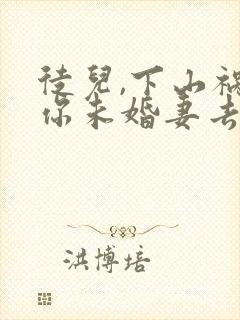 徒兒,下山祸
你未婚妻去
洪博培